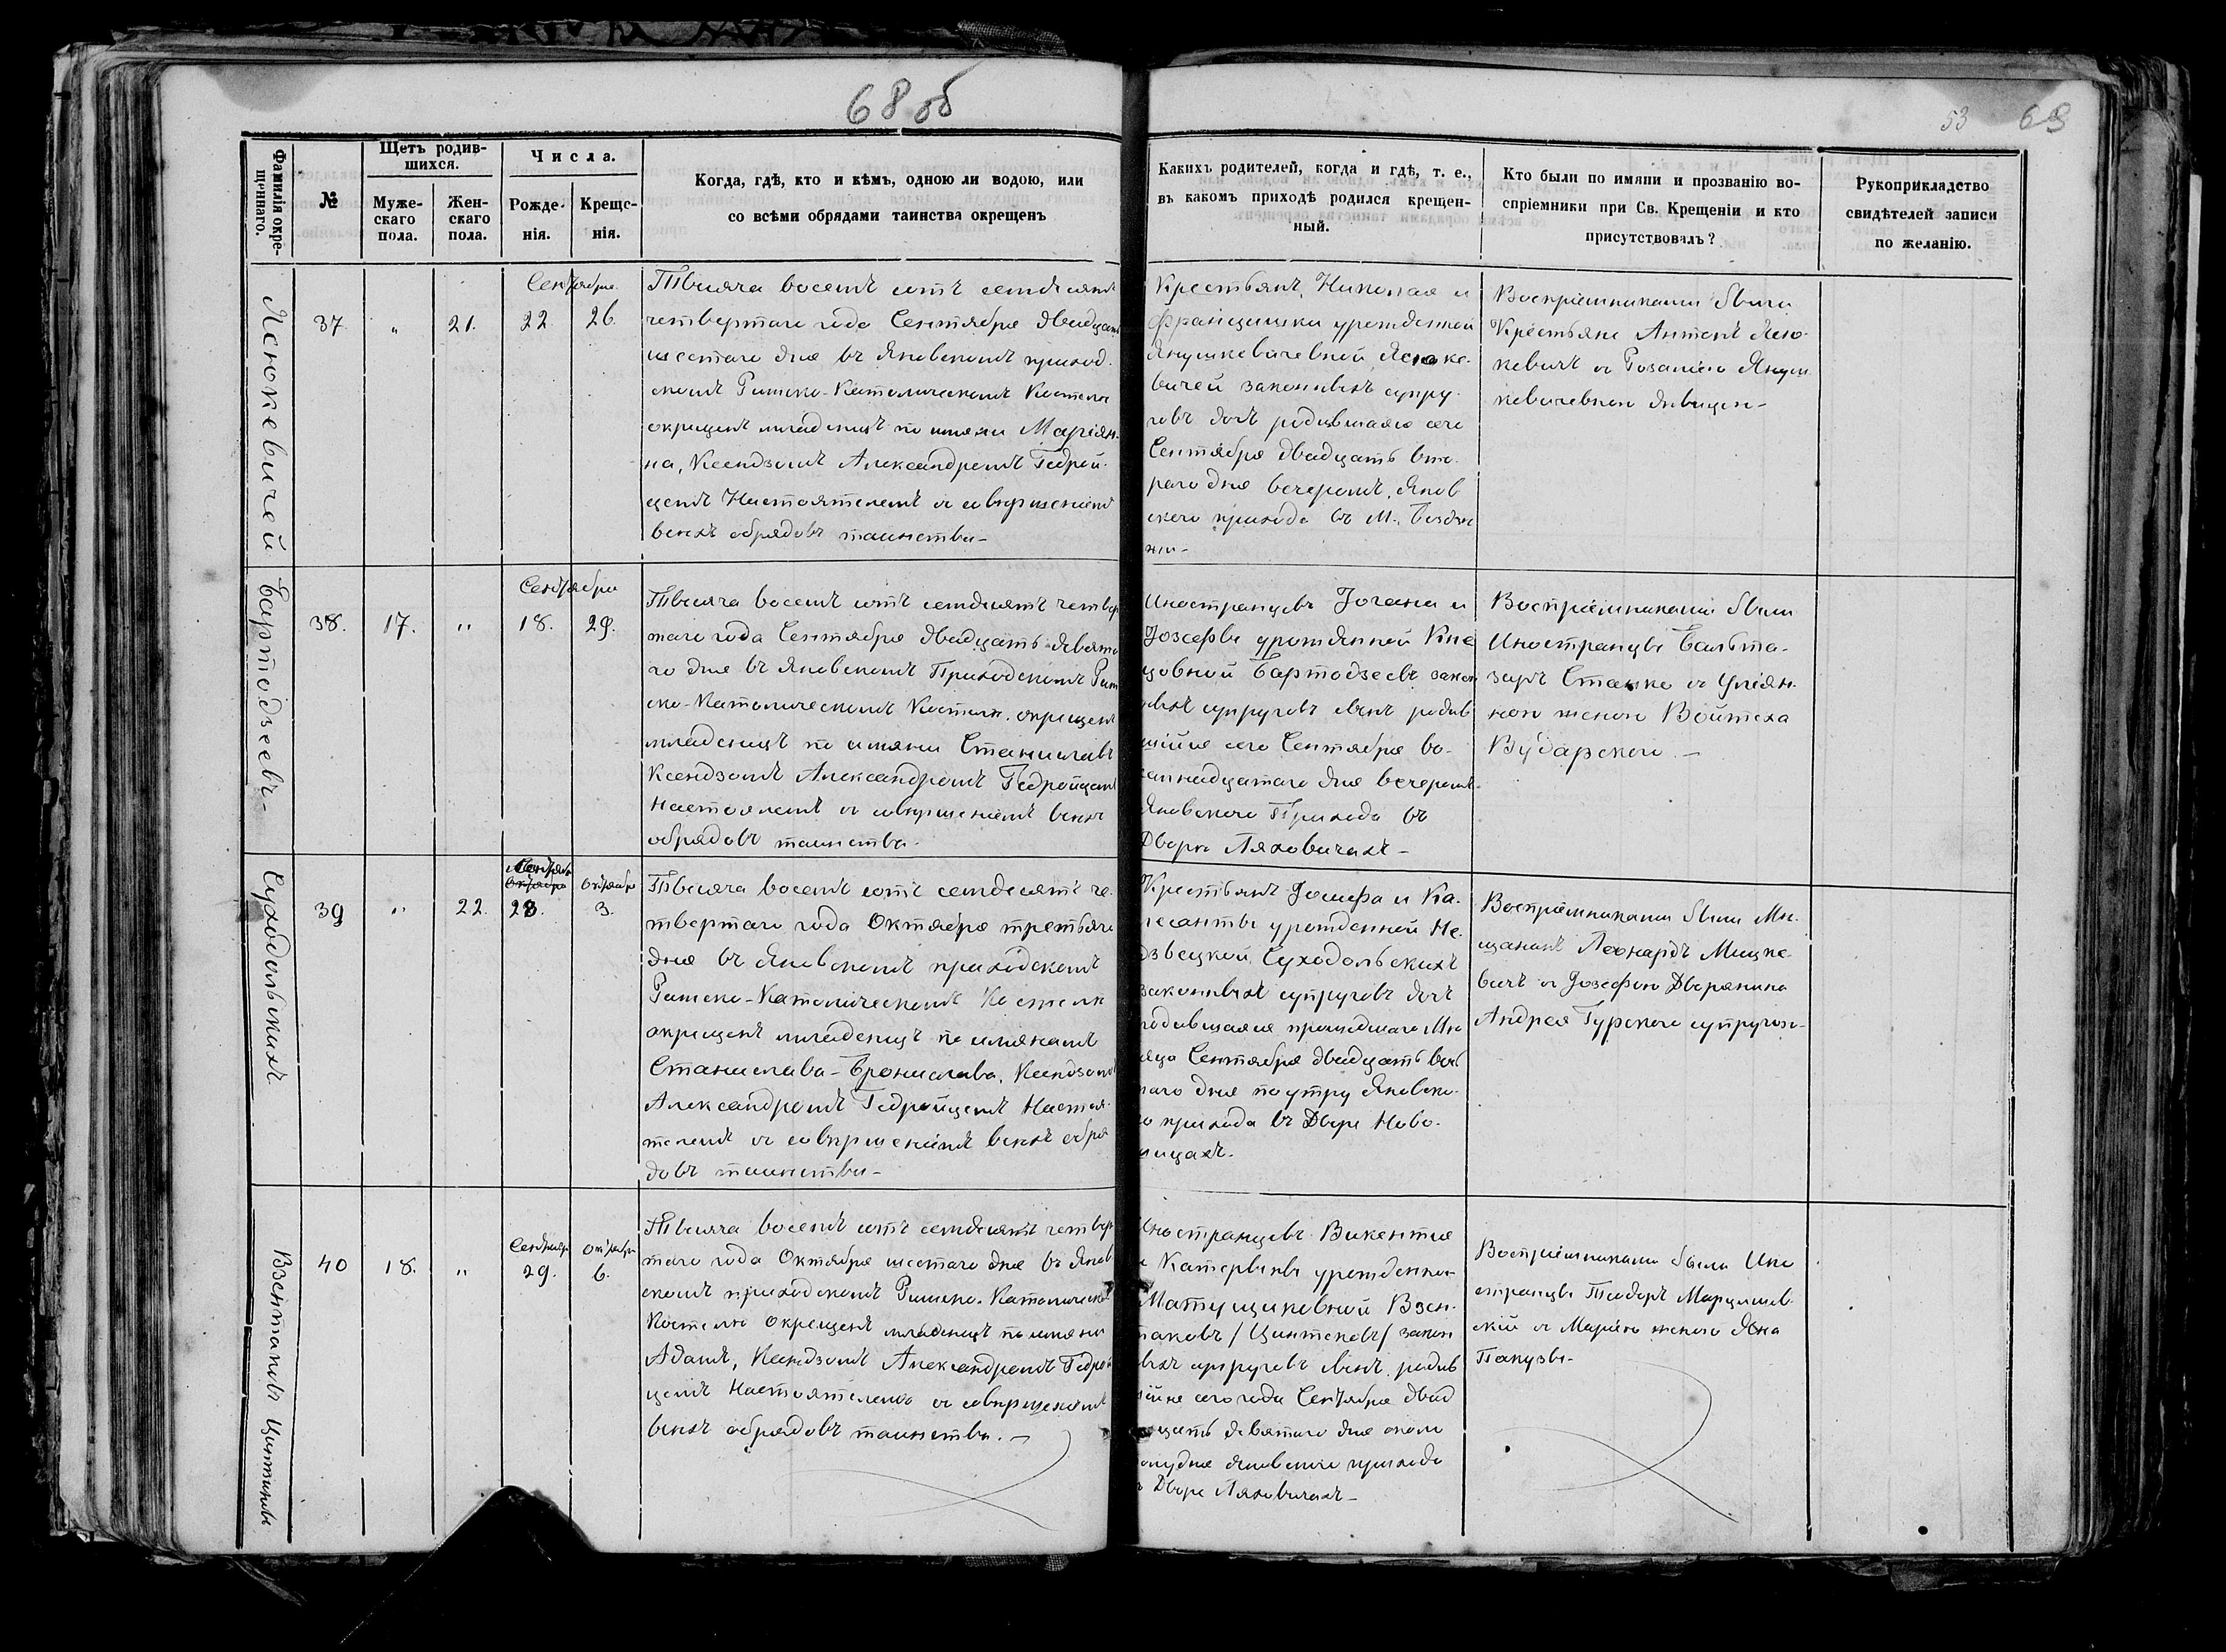 68 об
53 69
Фамилія окре-
щеннаго.
№
Щетъ родив-
шихся.
Муже-
скаго
пола.
Жен-
скаго
пола.
Числа.
Рожде-
нія.
Креще-
нія.
Когда, гдѣ, кто и кѣмъ, одною ли водою, или
со всѣми обрядами таинства окрещенъ
Какихъ родителей, когда и гдѣ, т. е.,
въ какомъ приходѣ родился крещен-
ный.
Кто были по имяни и прозванію во-
спріемники при Св. Крещеніи и кто
присутствовалъ?
Рукоприкладство
свидѣтелей записи
по желанію.
Яснокевичей
37
"
21.
Сентября
22.
26.
Тысяча восемь сотъ семдесятъ
четвертаго года Сентября двадцать
шестаго дня въ Яновскомъ приход-
скомъ Римско-Католическомъ Костелѣ
окрещенъ младенецъ по имяни Маріян-
на, Ксендзомъ Александромъ Гедрой-
цемъ Настоятелемъ съ совершеніемъ
всѣхъ обрядовъ таинства-
Крестьянъ Николая и
Францишки урожденной
Янушкевичевной Яснюке-
вичей законныхъ супру-
говъ дочь родившаяся сего
Сентября двадцать вто-
раго дня вечеромъ, Янов
скаго прихода въ М.
Воспріемниками были
Крестьяне Антонъ Ясю-
кевичъ съ Розаліею Януш
кевичевною дѣвицею-
Бартодзеевъ-
38.
17.
"
Сентября
18.
29.
Тысяча восемь сотъ семдесятъ четвер
таго года Сентября двадцать девята
го дня въ Яновскомъ Приходскомъ Рим
ско-Католическомъ Костелѣ окрещенъ
младенецъ по имяни Станиславъ
Ксендзомъ Александромъ Гедройцемъ
Настоялемъ съ совершеніемъ всѣхъ
обрядовъ таинства-
Иностранцевъ Іогана и
Іозефы урожденной Кне
цовной Бартодзеевъ закон
ныхъ супруговъ сынъ родив
шійся сего Сентября во-
семнадцатаго дня вечеромъ
Яновскаго Прихода въ
Дворѣ Ляховичахъ-
Воспріемниками были
Иностранцы Бальта-
заръ Станко съ Уліян-
ною женою Войтеха
Вударскаго.-
Суходольскихъ
39
"
22.
Сентября
Октября
28.
Октября
3.
Тысяча восемь сотъ семдесятъ че-
твертаго года Октября третьяго
дня въ Яновскомъ приходскомъ
Римско-Католическомъ Костелѣ
окрещенъ младенецъ по имянамъ
Станислава-Бронислава, Ксендзомъ
Александромъ Гедройцемъ Настоя-
телемъ съ совершеніемъ всѣхъ обря
довъ таинства-
Крестьянъ Іосифа и Ка-
лесанты урожденной Не-
дзвецкой Суходольскихъ
законныхъ супруговъ дочь
родившаяся прошедшаго Мѣ
сяца Сентября двадцать вось
маго дня поутру Яновска-
го прихода въ Дворѣ Ново-
лицахъ.
Воспріемниками были Мѣ-
щанинъ Леонардъ Мицке-
вичъ съ Іозефою Дворянина
Андрея Гурскаго супругою-
Взентаковъ Цинтиковъ
40
18.
"
Сентября
29.
Октября
6.
Тысяча восемь сотъ семдесятъ четвер
таго года Октября шестаго дня въ Янов
скомъ приходскомъ Римско-Католическомъ
Костелѣ окрещенъ младенецъ по имяни
Адамъ, Ксендзомъ Александромъ Гедрой
цемъ Настоятелемъ съ совершеніемъ
всѣхъ обрядовъ таинства.-
Иностранцевъ Викентія
и Катерины урожденной
Матущиковной Взен-
таковъ /Цинтековъ/ закон
ныхъ супруговъ сынъ родив
шійся сего года Сентября двад
цать девятаго дня около
полудня Яновскаго прихода
въ Дворѣ Ляховичахъ-
Воспріемниками были Ино
странцы Теодоръ Марцишев-
скій съ Маріею женою Яна
Пакузы-